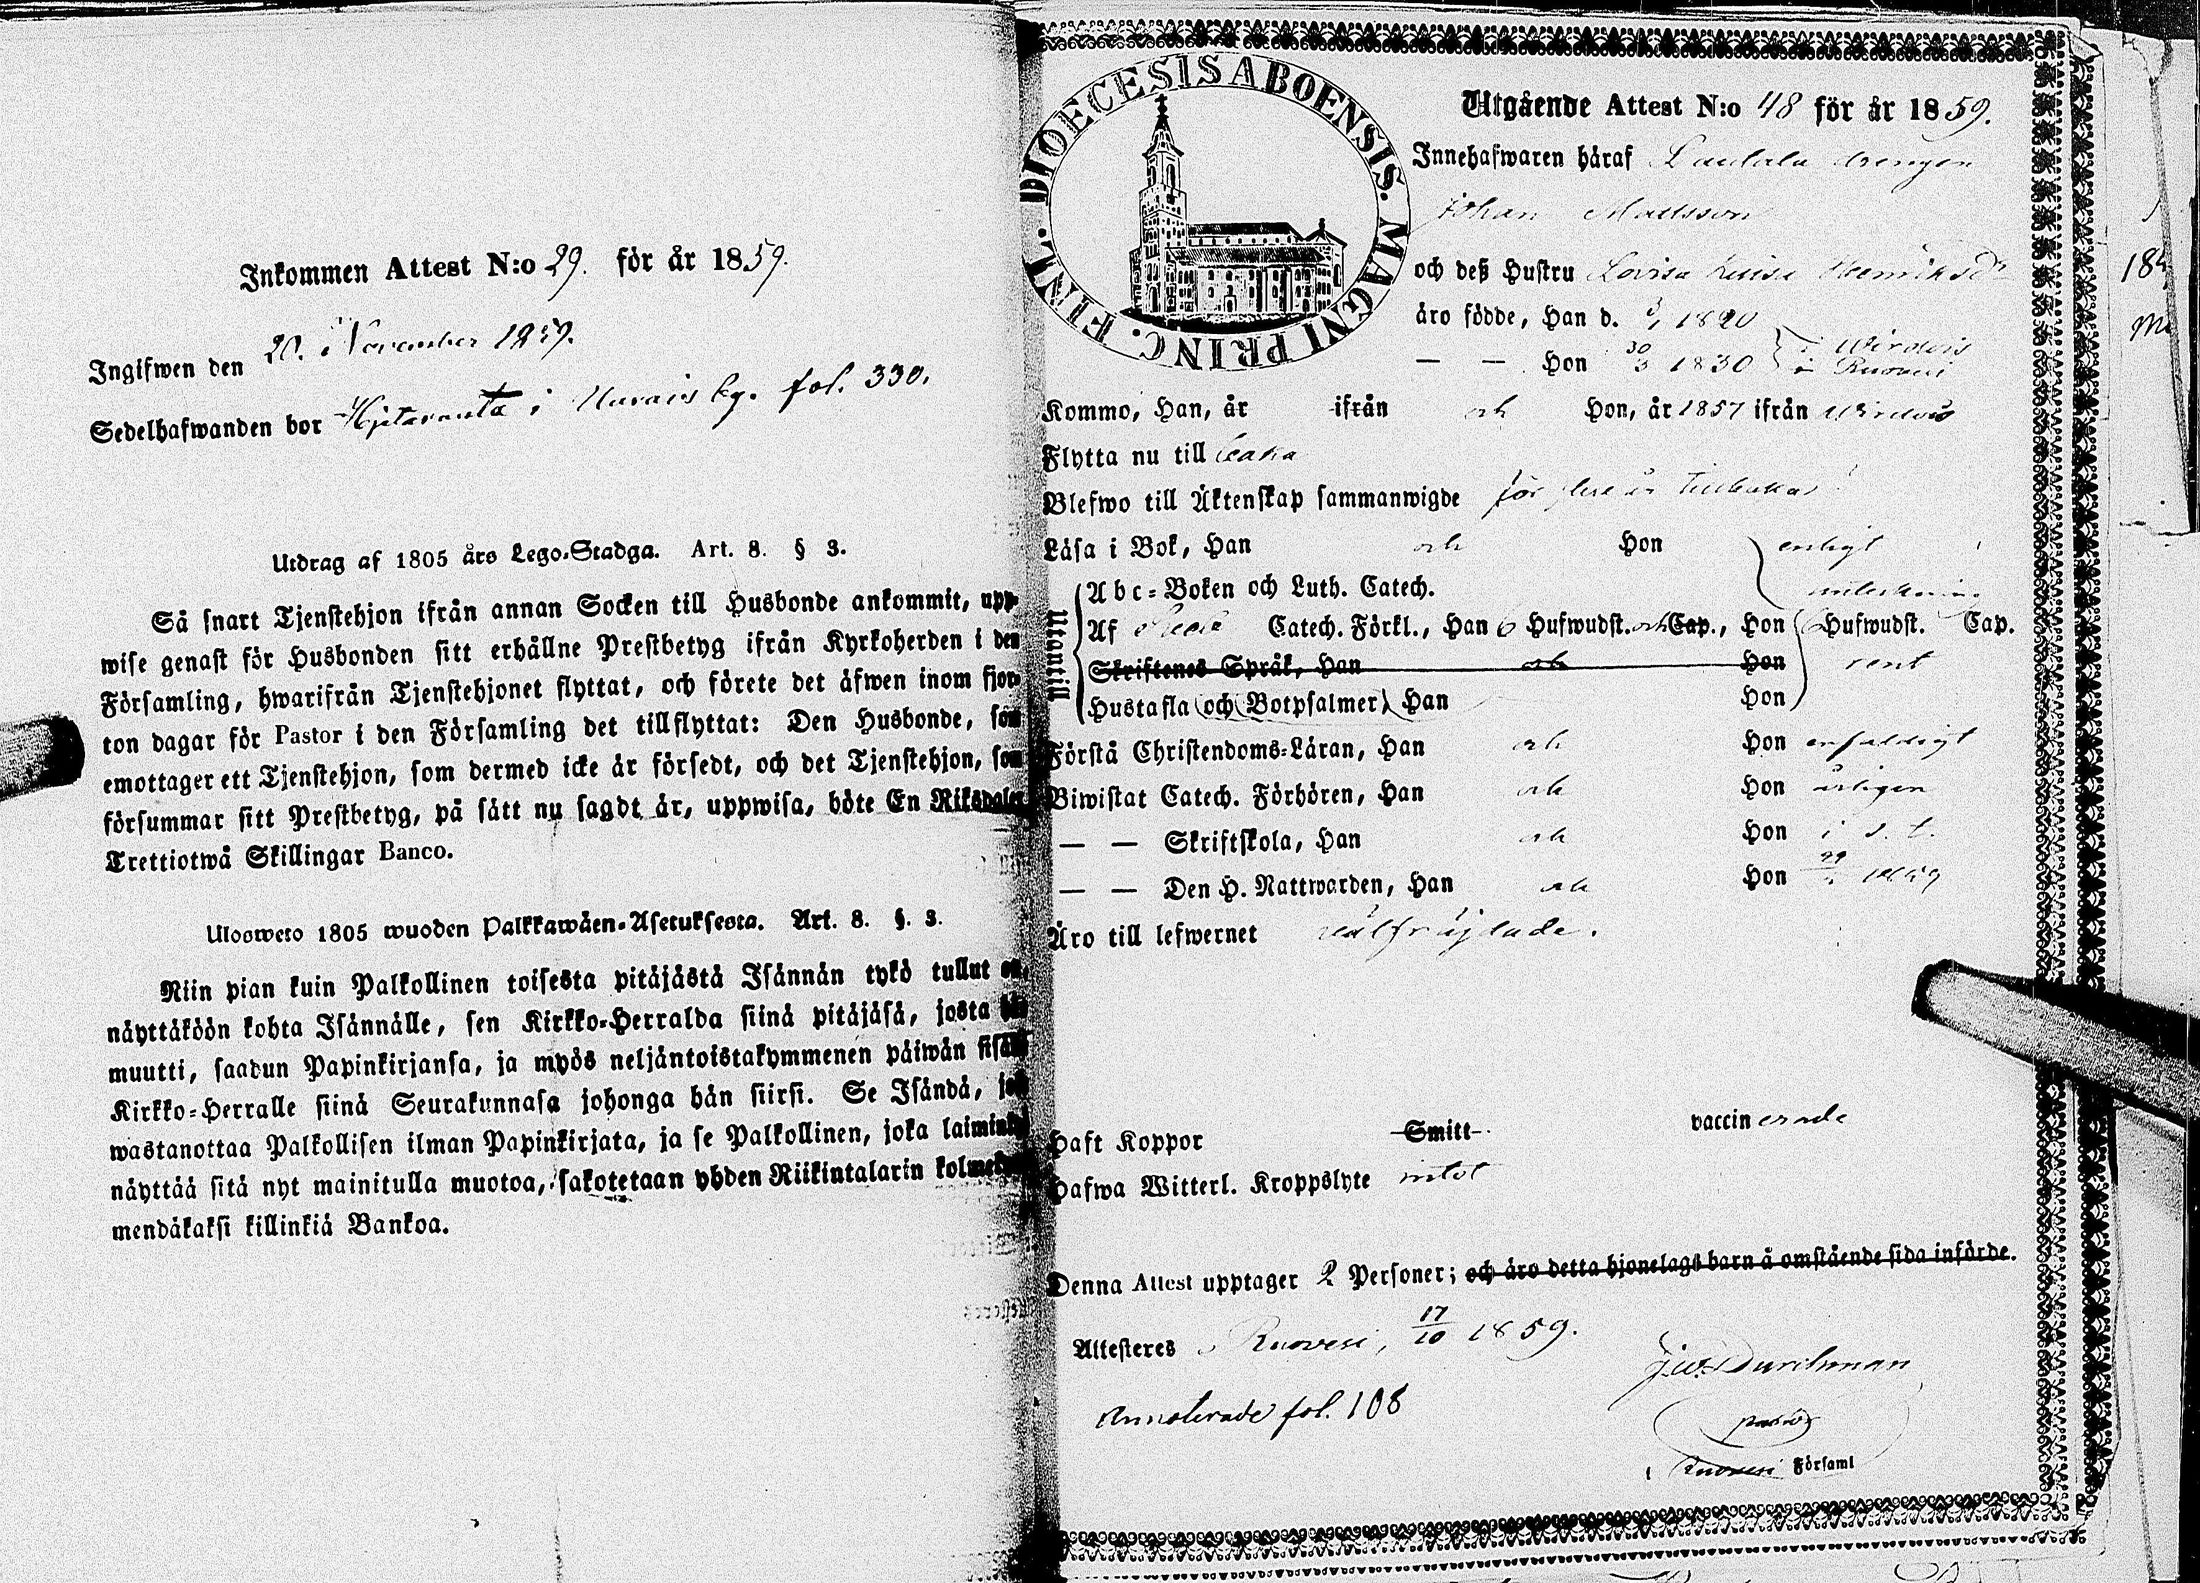 Inkommen Attest N:o 29. för år 1859.
Ingifwen den 20. November 1859.
Sedelhafwanden bor i by. fol. 330.
Utdrag af 1805 års Lego-Stadga. Art. 8. § 3.
Så snart Tjenstehjon ifrån annan Socken till Husbonde ankommit, upp-
wise genast för Husbonden sitt erhållne Prestbetyg ifrån Kyrkoherden i den
Församling, hwarifrån Tjenstehjonet flyttat, och förete det äfwen inom fjor-
ton dagar för Pastor i den Församling det tillflyttat: Den Husbonde, som
emottager ett Tjenstehjon, som dermed icke är försedt, och det Tjenstehjon, som
försummar sitt Prestbetyg, på sätt nu sagdt är, uppwisa, böte En Riksdaler
Trettiotwå Skillingar Banco.
Ulosweto 1805 wuoden Palkkawäen-Asetuksesta. Art. 8. §. 3.
Niin pian kuin Palkollinen toisesta pitäjästä Isännän tykö tullut on,
näyttäköön kohta Isännälle, sen Kirkko-Herralda siinä pitäjäsä, josta hän
muutti, saadun Papinkirjansa, ja myös neljäntoistakymmenen päiwän sisällä
Kirkko-Herralle siinä Seurakunnasa johonga hän siirsi. Se Isändä, joka
wastanottaa Palkollisen ilman Papinkirjata, ja se Palkollinen, joka laiminlyö
näyttää sitä nyt mainitulla muotoa, sakotetaan yhden Riikintalarin kolmekym-
mendäkaksi killinkiä Bankoa.
DIOECESIS ABOENSIS. MAGNI PRINC. FINL.
Utgående Attest N:o 48 för år 1859.
Innehafwaren häraf drengen
Johan Mattsson
och deß Hustru Lovisa Henriksdr
äro födde, Han d. 1820
— — Hon 30/3 1830 i Ruovesi
Kommo, Han, år ifrån och Hon, år 1857 ifrån Wirdois
Flytta nu till
Blefwo till Äktenskap sammanwigde för flere år tillbaka
Läsa i Bok, Han och Hon enligt
Abc-Boken och Luth. Catech.
Utantill
Af Catech. Förkl., Han 6 Hufwudst. och Cap., Hon 6 Hufwudst. Cap.
Skriftenes Språk, Han och Hon rent
Hustafla (och Botpsalmer) Han Hon
Förstå Christendoms-Läran, Han och Hon enfaldigt
Biwistat Catech. Förhören, Han och Hon årligen
— — Skriftskola, Han och Hon i s. t.
— — Den H. Nattwarden, Han och Hon 1859
Äro till lefwernet wälfräjdade.
Haft Koppor Smitt vaccinerade
Hafwa Witterl. Kroppslyte intet
Denna Attest upptager 2 Personer; och äro detta hjonelags barn å omstående sida införde.
Attesteres Ruovesi, 17/10 1859.
J.W. Durchman
Annoterade fol. 108
pastor
i Ruovesi Församl